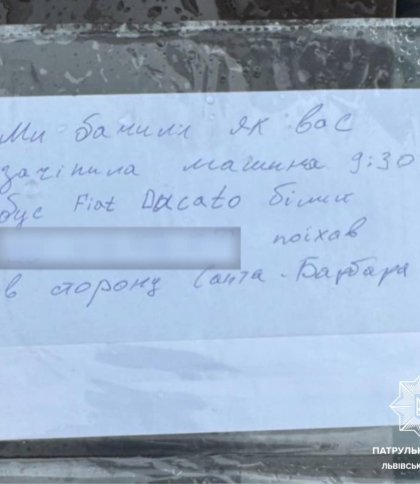 Ми бачили як вас
зачіпила машина 9:30
бус Fiat Ducato білий
поїхав
в сторону Санта-Барбара
ПАТРУЛЬ
ЛЬВІВСЬ